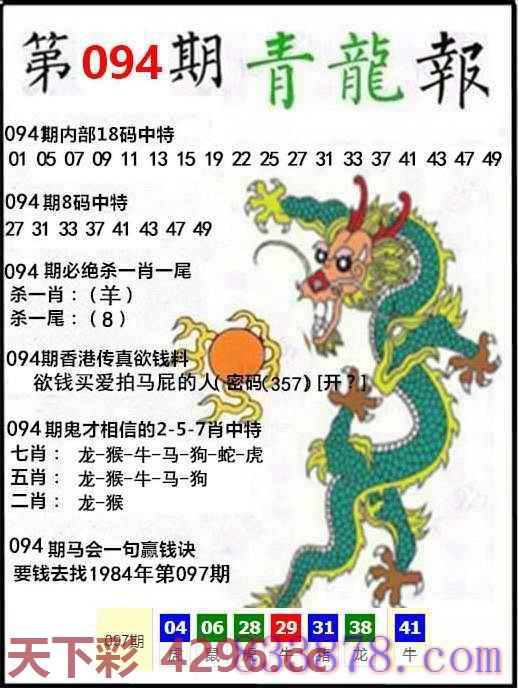 第094期青龍報
094期内部18码中特
01 05 07 09 11 13 15 19 22 25 27 31 33 37 41 43 47 49
094期8码中特
27 31 33 37 41 43 47 49
094 期必绝杀一肖一尾
杀一肖：（羊）
杀一尾：（8）
094期香港传真欲钱料
欲钱买爱拍马屁的人(密码(357) [开？]
094期鬼才相信的2-5-7肖中特
七肖： 龙-猴-牛-马-狗-蛇-虎
五肖： 龙-猴-牛-马-狗
二肖： 龙-猴
094期马会一句赢钱诀
要钱去找1984年第097期
097期 04 06 28 29 31 38 41
虎 鼠 虎 牛 猪 龙 牛
天下彩 4296.cc